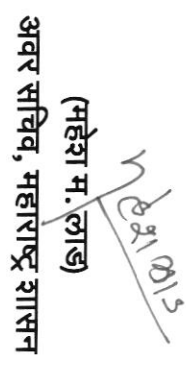 महेश लाड
(महेश म. लाड)
अवर सचिव, महाराष्ट्र शासन